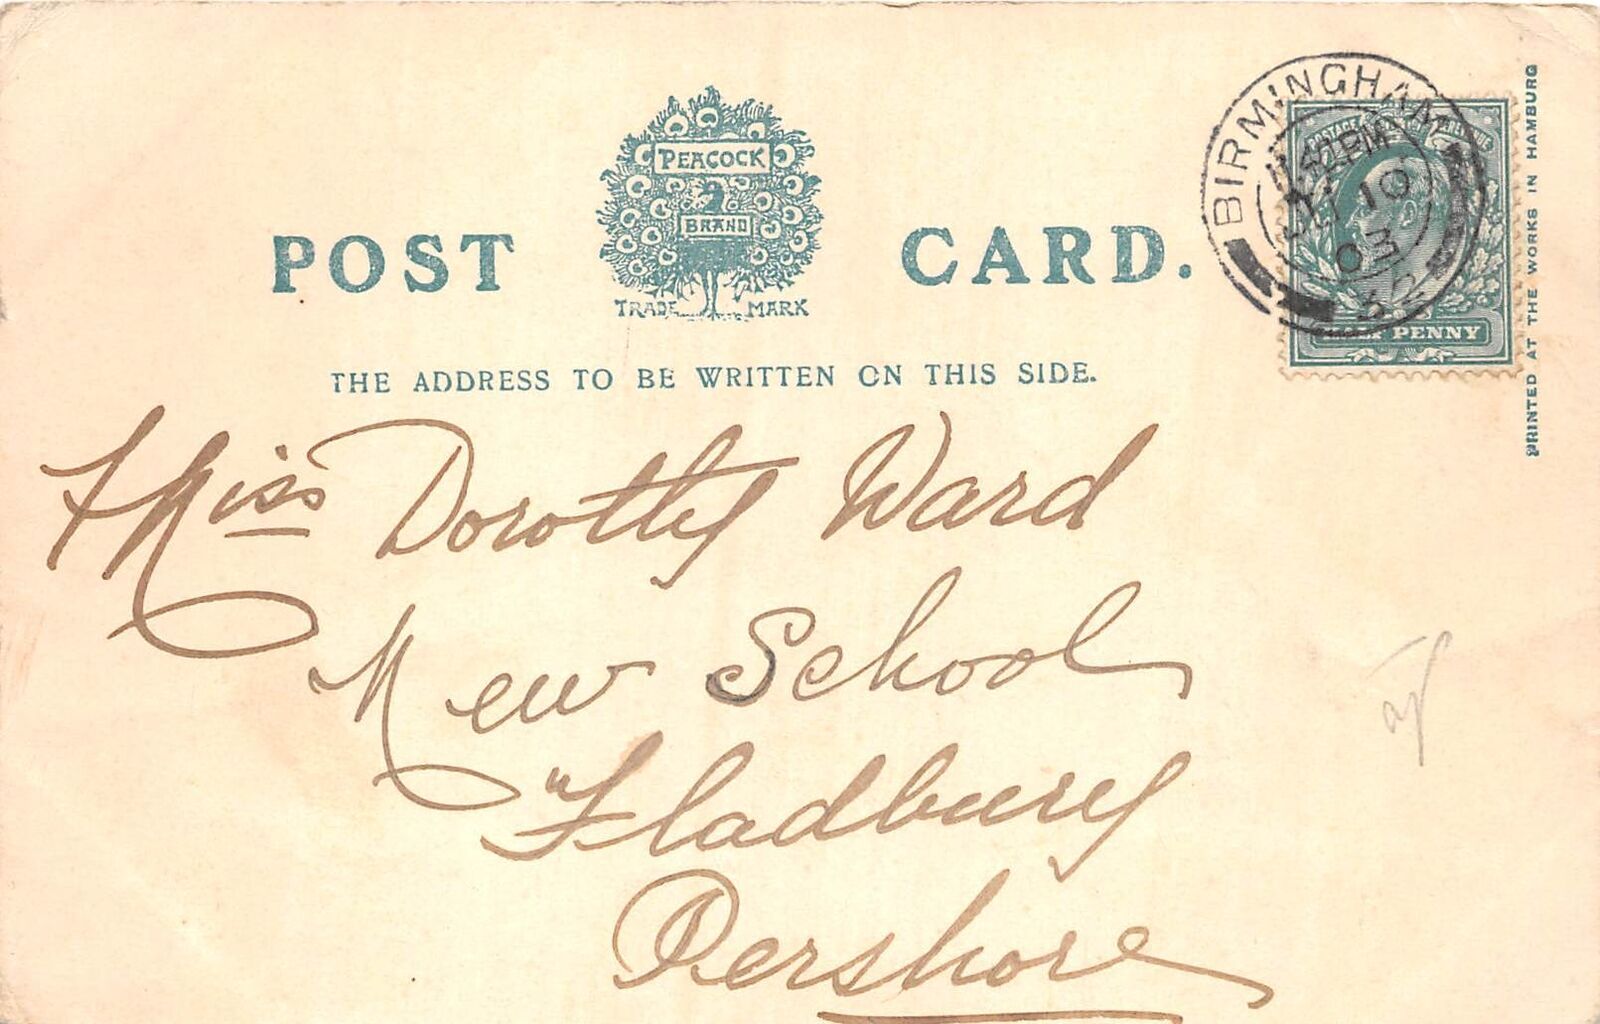 POST CARD.
PEACOCK
BRAND
TRADE MARK
THE ADDRESS TO BE WRITTEN ON THIS SIDE.
BIRMINGHAM
PM
10
03
32
POSTAGE
HALF PENNY
PRINTED AT THE WORKS IN HAMBURG
Miss Dorothy Ward
New School
Fladbury
Pershore